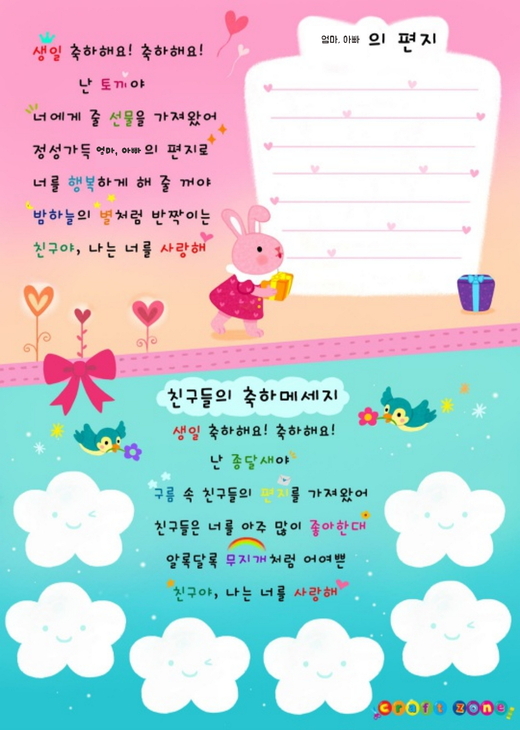 생일 축하해요! 축하해요!
난 토끼야
너에게 줄 선물을 가져왔어
정성가득 엄마, 아빠의 편지로
너를 행복하게 해 줄 꺼야
밤하늘의 별처럼 반짝이는
친구야, 나는 너를 사랑해
엄마, 아빠 의 편지
친구들의 축하메세지
생일 축하해요! 축하해요!
난 종달새야
구름 속 친구들의 편지를 가져왔어
친구들은 너를 아주 많이 좋아한대
알록달록 무지개처럼 어여쁜
친구야, 나는 너를 사랑해
craft zone